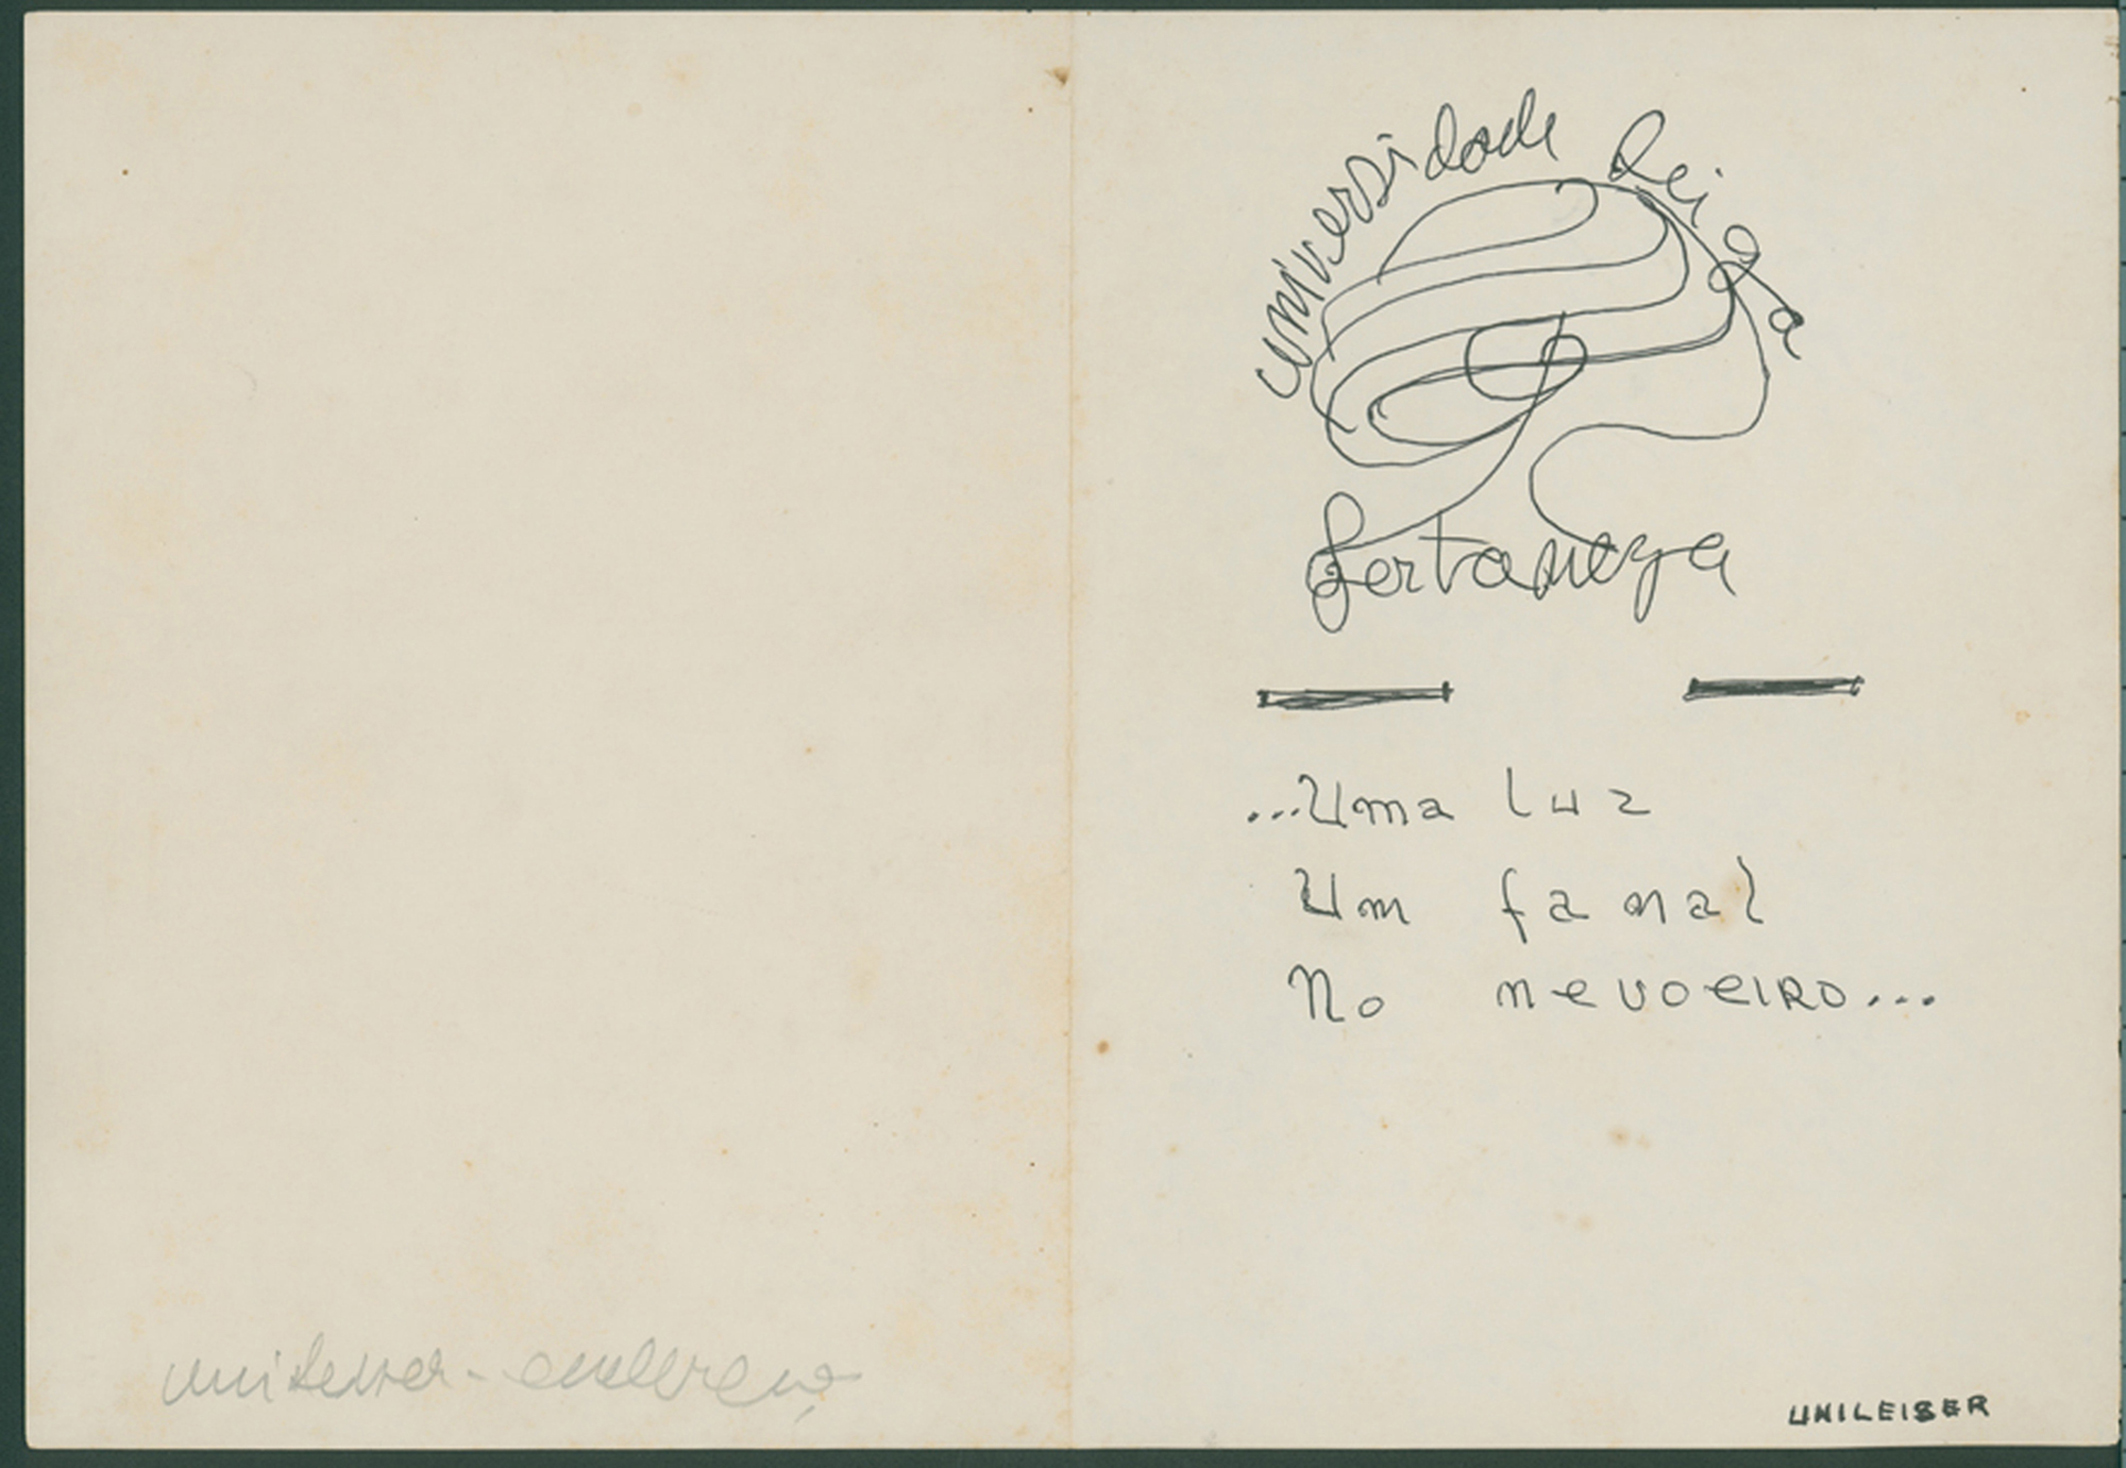 universidade leiga
Sertaneja
...Uma luz
Um fanal
No nevoeiro...
unileiser -
UNILEISER